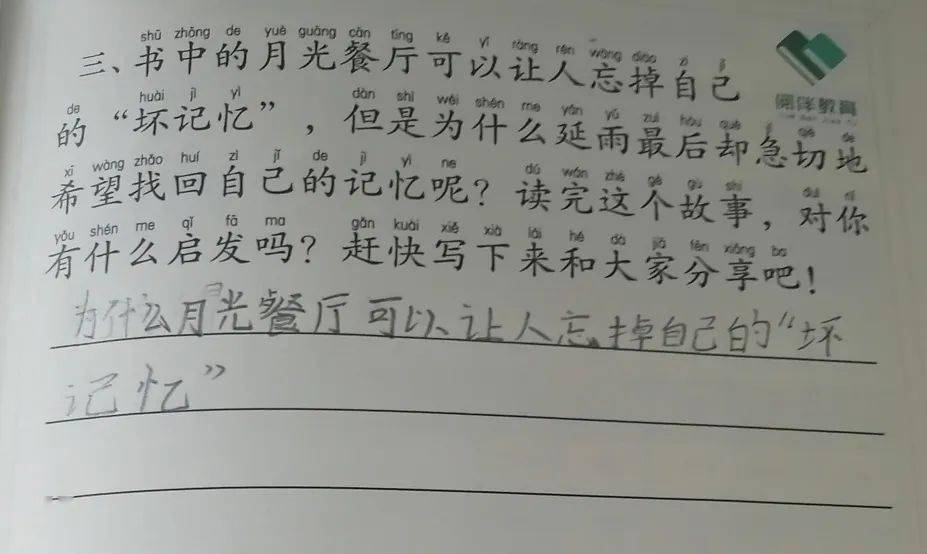 shū zhōng de yuè guāng cān tīng kě yǐ ràng rén wàng diào zì jǐ
三、书中的月光餐厅可以让人忘掉自己
de huài jì yì dàn shì wèi shén me yán yǔ zuì hòu què jí qiè de
的“坏记忆”，但是为什么延雨最后却急切地
xī wàng zhǎo huí zì jǐ de jì yì ne dú wán zhè gè gù shi duì nǐ
希望找回自己的记忆呢？读完这个故事，对你
yǒu shén me qǐ fā ma gǎn kuài xiě xià lái hé dà jiā fēn xiǎng ba
有什么启发吗？赶快写下来和大家分享吧！
为什么月光餐厅可以让人忘掉自己的“坏
记忆”
伴教育